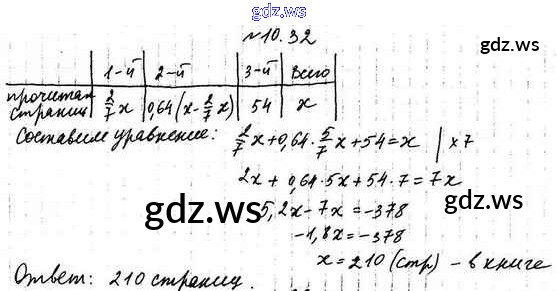 gdz.ws
№10.32
gdz.ws
1-й 2-й 3-й Всего
прочитан страниц 2/7x 0,64(x-2/7x) 54 x
Составим уравнение: 2/7x+0,64·5/7x+54=x | x7
2x+0,64·5x+54·7=7x
gdz.ws gdz.ws
5,2x-7x=-378
-1,8x=-378
x=210(стр) - в книге
Ответ: 210 страниц.
gdz.ws